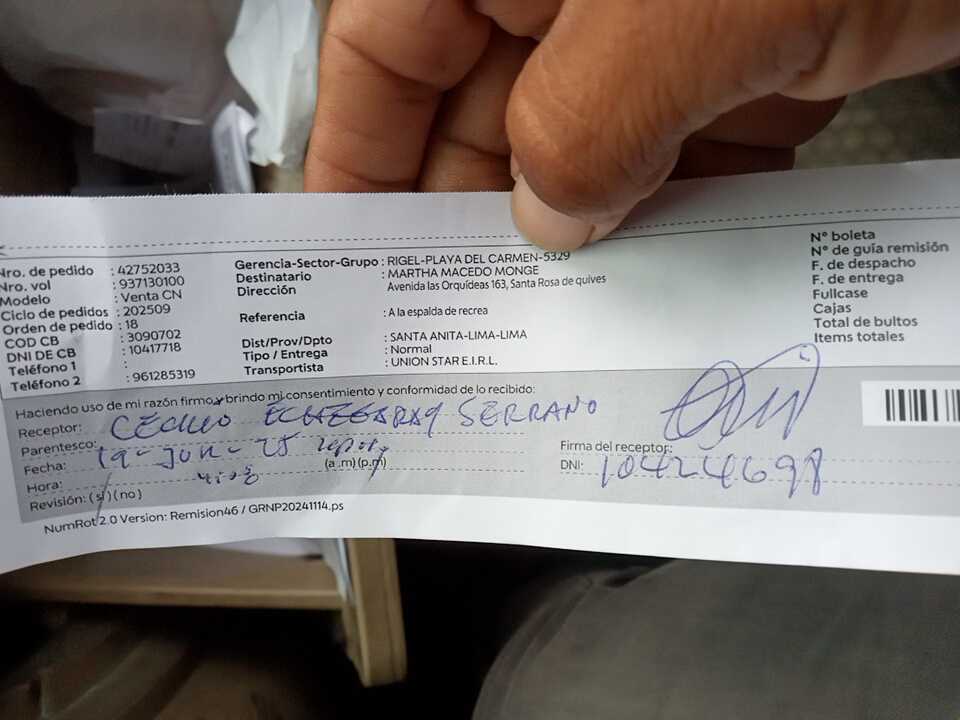 Nro. de pedido : 42752033
Nro. vol : 937130100
Modelo : Venta CN
Ciclo de pedidos : 202509
Orden de pedido : 18
COD CB : 3090702
DNI DE CB : 10417718
Teléfono 1 :
Teléfono 2 : 961285319
Gerencia-Sector-Grupo : RIGEL-PLAYA DEL CARMEN-5329
Destinatario : MARTHA MACEDO MONGE
Dirección Avenida las Orquídeas 163, Santa Rosa de quives
Referencia : A la espalda de recrea
Dist/Prov/Dpto : SANTA ANITA-LIMA-LIMA
Tipo / Entrega : Normal
Transportista : UNION STAR E.I.R.L.
N° boleta
N° de guía remisión
F. de despacho
F. de entrega
Fullcase
Cajas
Total de bultos
Items totales
Haciendo uso de mi razón firmo y brindo mi consentimiento y conformidad de lo recibido:
Receptor: CECILIO ECHEGARAY SERRANO
Parentesco:
Fecha: 19- JUN- 25 (a.m)(p.m)
Hora:
Revisión: (si)(no)
Firma del receptor:
DNI: 10424698
NumRot 2.0 Version: Remision46 / GRNP20241114.ps